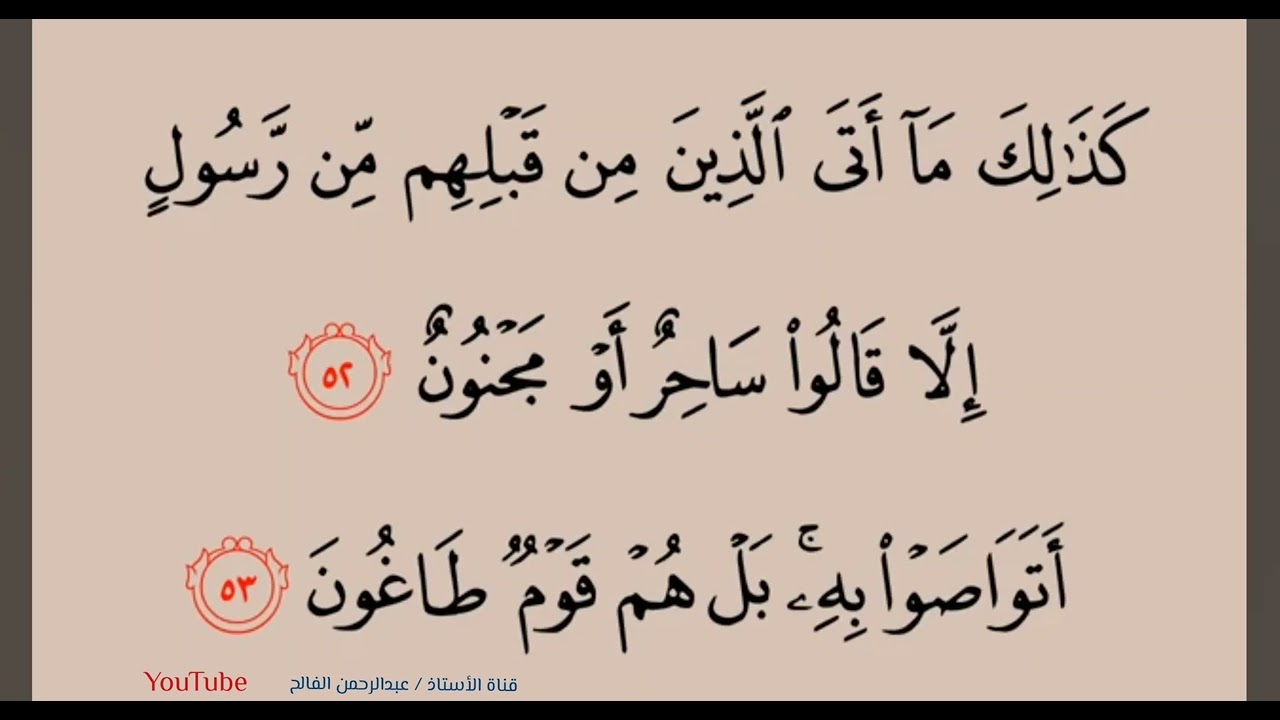 كَذَٰلِكَ مَآ أَتَى ٱلَّذِينَ مِن قَبۡلِهِم مِّن رَّسُولٍ
إِلَّا قَالُواْ سَاحِرٌ أَوۡ مَجۡنُونٌ ٥٢
أَتَوَاصَوۡاْ بِهِۦۚ بَلۡ هُمۡ قَوۡمٞ طَاغُونَ ٥٣
قناة الأستاذ / عبدالرحمن الفالح YouTube